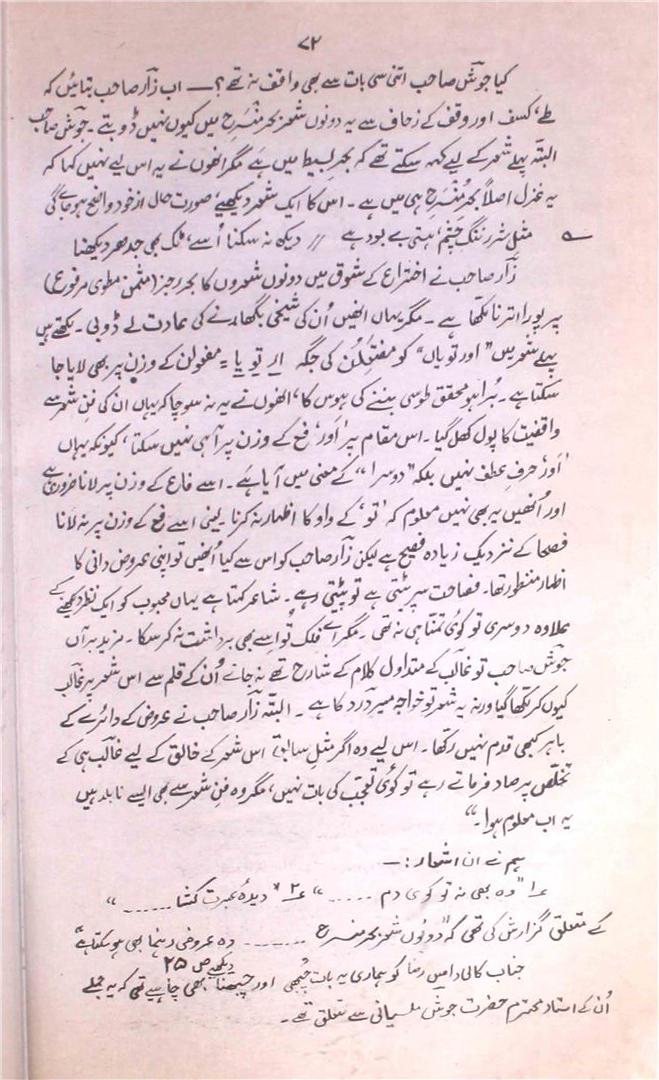 ۷۲
کیا جوشؔ صاحب اتنی سی بات سے بھی واقف نہ تھے؟ — اب زارؔ صاحب بتائیں کہ
طے، کسف اور وقف کے زحاف سے یہ دونوں شعر بحر منسرح میں کیوں نہیں ڈوبتے۔ جوشؔ صاحب
البتہ پہلے شعر کے لیے کہہ سکتے تھے کہ بحر بسیط میں ہے مگر انھوں نے یہ اس لیے نہیں کہا کہ
یہ غزل اصلاً بحر منسرح ہی میں ہے۔ اس کا ایک شعر دیکھیے، صورت حال از خود واضح ہو جائے گی
مثل شرر تنگ چشم، ہستی بے بود ہے // دیکھ نہ سکنا اُسے، ٹک بھی جدھر دیکھنا
زارؔ صاحب نے اختراع کے شوق میں دونوں شعروں کا بحر رجز (مثمن مطوی مرفوع)
پر پورا اترنا لکھا ہے۔ مگر یہاں انھیں اُن کی شیخی بگھارنے کی عادت لے ڈوبی۔ لکھتے ہیں
پہلے شعر میں "اور تو یاں" کو مفتعلن کی جگہ اَر تو یا = مفعولن کے وزن پر بھی لایا جا
سکتا ہے۔ بُرا ہو محقق طوسی بننے کی ہوس کا، انھوں نے یہ نہ سوچا کہ یہاں ان کی فنِ شعر سے
واقفیت کا پول کھل گیا۔ اس مقام پر 'اور' فع کے وزن پر آ ہی نہیں سکتا، کیونکہ یہاں
'اور' حرفِ عطف نہیں بلکہ "دوسرا" کے معنی میں آیا ہے۔ اسے فاع کے وزن پر لانا ضروری ہے
اور اُنھیں یہ بھی نہیں معلوم کہ 'تو' کے واو کا اظہار نہ کرنا۔ یعنی اسے فع کے وزن پر نہ لانا
فصحا کے نزدیک زیادہ فصیح ہے لیکن زارؔ صاحب کو اس سے کیا اُنھیں تو اپنی عروض دانی کا
اظہار منظور تھا۔ فصاحت سر پیٹتی ہے تو پیٹتی رہے۔ شاعر کہتا ہے یہاں محبوب کو ایک نظر دیکھنے کے
علاوہ دوسری تو کوئی تمنا ہی نہ تھی۔ مگر اے فلک تُو اسے بھی برداشت نہ کر سکا۔ مزید برآں
جوشؔ صاحب تو غالبؔ کے متداول کلام کے شارح تھے نہ جانے اُن کے قلم سے اس شعر پر غالبؔ
کیوں کر لکھا گیا ورنہ یہ شعر تو خواجہ میر دردؔ کا ہے۔ البتہ زارؔ صاحب نے عروض کے دائرے کے
باہر کبھی قدم نہیں رکھا۔ اس لیے وہ اگر مثلِ سابق اس شعر کے خالق کے لیے غالبؔ ہی کے
تخلص پر صاد فرماتے رہے تو کوئی تعجب کی بات نہیں، مگر وہ فنِ شعر سے بھی ایسے نابلد ہیں
یہ اب معلوم ہوا۔"
ہم نے ان اشعار :—
۱؎ "وہ بھی نہ تو کوئی دم ......" ۲؎ "دیدۂ عبرت کشا ......"
کے متعلق گزارش کی تھی کہ "دونوں شعر بحر منسرح ........ وہ عروضی رہنما بھی ہو سکتا ہے"
دیکھیے ص ۲۵
جناب کالی داس رضا کو ہماری یہ بات چُبھی اور چبھنا بھی چاہیے تھی کہ یہ جملے
اُن کے استاد محترم حضرت جوشؔ ملسیانی سے متعلق تھے۔